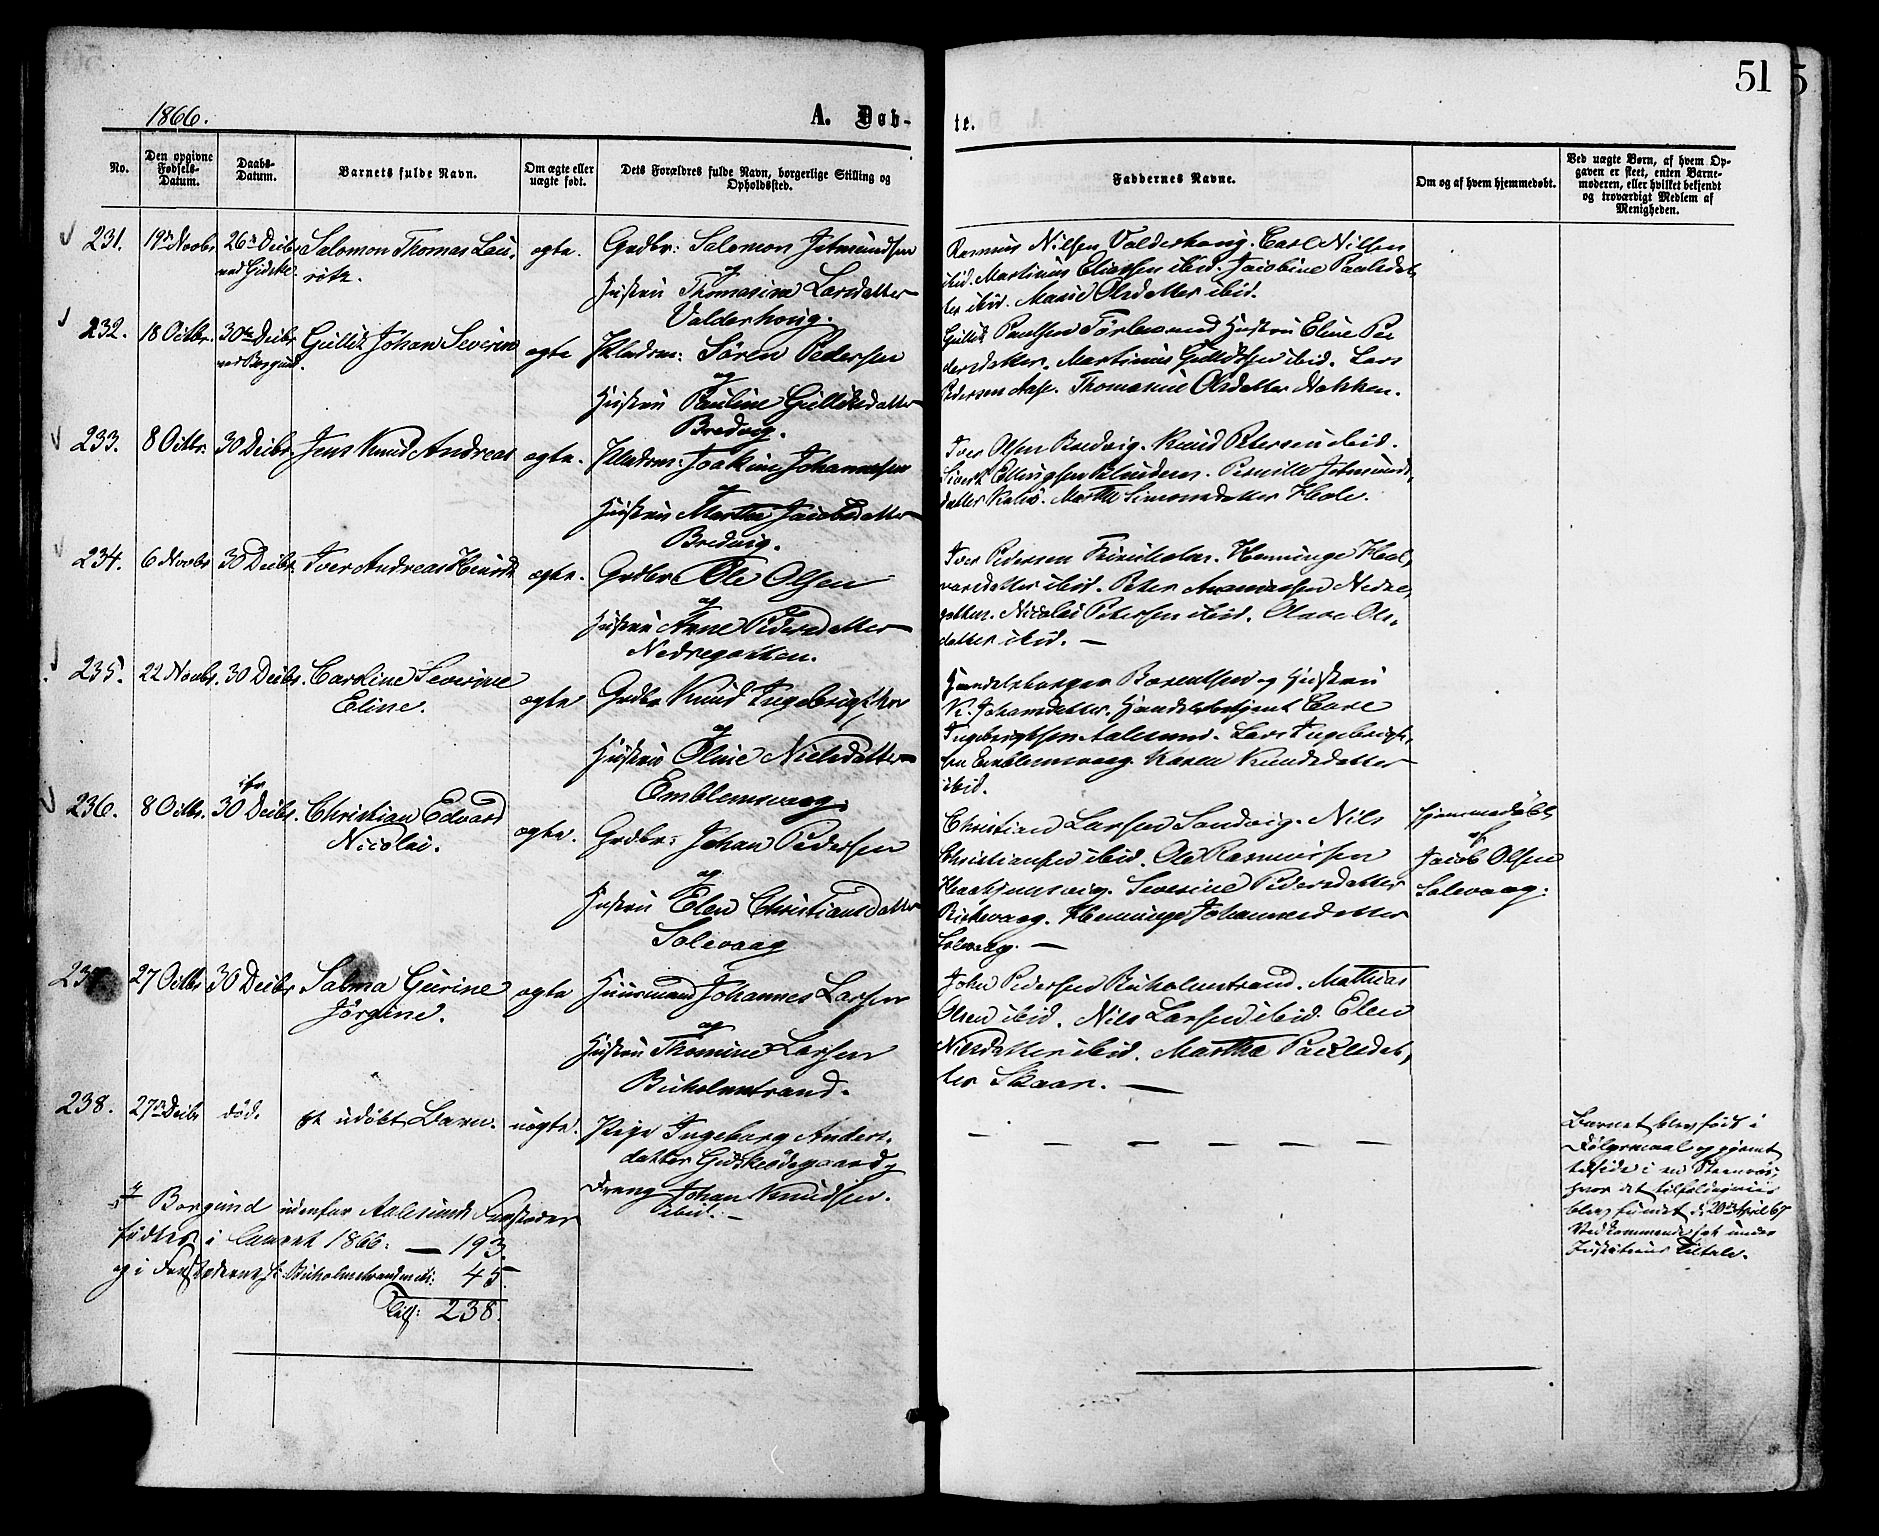 51
5
1866.
A. Døb-
te.
No.
Den opgivne Fødsels-Datum.
Daabs-Datum.
Barnets fulde Navn.
Om ægte eller uægte født.
Dets Forældres fulde Navn, borgerlige Stilling og Opholdssted.
Faddernes Navne.
Om og af hvem hjemmedøbt.
Ved uægte Børn, af hvem Op-
gaven er skeet, enten Barne-
moderen, eller hvilket bekjendt
og troværdigt Medlem af
Menigheden.
231. 19de Novbr 26de Decbr Salomon Thomas Lau-
ved Gidske. rits.
ægte. Grdbr: Salomon Jetmundsen
og
Hustru Thomasine Larsdatter
Valderhoug.
Rasmus Nilsen Valderhoug. Carl Nilsen
ibid. Martinus Eliassen ibid. Jacobine Paulsdat-
ter ibid. Marie Olsdatter ibid.
232. 18 Octbr. 30te Decbr Gullik Johan Severin
ved Borgund.
ægte Søren Pedersen
og
Hustru Pauline Gulliksdatter
Bredvig.
Gullik Paulsen og Hustru Eline Pe-
dersdatter. Martinus Gulliksen ibid. Lars
Pedersen Aase. Thomasine Olsdatter Nakken.
233. 8 Octbr. 30 Decbr Jens Knud Andreas
ægte. Joakim Johannesen
og
Hustru Marthe Jacobsdatter
Bredvig.
Iver Olsen Bredvig. Knud Petersen ibid.
Sivert Ellingsen. Pernille Jetmunds-
datter. Marthe Simonsdatter Hole.
234. 6 Novbr 30 Decbr. Iver Andreas Hendrik
ægte. Grdbr Ole Olsen
og
Hustru Anne Pedersdatter
Nedregotten.
Iver Pedersen. Henninge Hal-
varsdatter ibid. Peter Nedre-
gotten. Nicolai Petersen ibid. Ols-
datter ibid. —
235. 22 Novbr. 30 Decbr. Caroline Severine
Eline.
ægte Grdbr Knud Ingebrigtsen
og
Hustru Oline Nielsdatter
Emblemsvaag.
Handelsborger Berentsen og Hustru
K. Johansdatter. Handelsbetjent
Ingebrigtsen Aalesund. Lars Ingebrigt-
sen Emblemsvaag. Karen Knudsdatter
ibid.
236. 8 Octbr. 30 Decbr. Christian Edvard
Nicolai.
ægte. Grdbr: Johan Pedersen
og
Hustru Elen Christiansdatter
Solevaag
Christian Larsen Sandvig. Nils
Christiansen ibid. Ole Rasmussen
Severine Pedersdatter
Henninge Johannesdatter
Solevaag. —
Hjemmedøbt
af
Jacob Olsen
Solevaag.
237. 27 Octbr 30 Decbr Salma Gurine
Jørgine.
ægte Huusmand Johannes Larsen
og
Hustru Thomine Larsen
Buholmstrand.
John Pedersen Buholmstrand. Mathias
Olsen ibid. Nils Larsen ibid. Elen
Nilsdatter ibid. Marthe Paulsdat-
ter Skaar. —
238. 27de Decbr død. et udøbt Barn. uægte. Pige Ingeborg Anders-
datter Gidskeødegaard og
Dreng Johan Knudsen.
ibid. —
— — — — — —
Barnet blev født i
Dølgsmaal og gjemt
tilside i en Steenrøs,
hvor det tilfældigviis
blev fundet d. 20de April 67
Vedkommende sat under
Justitiens Tiltale.
I Borgund udenfor Aalesunds Forstæder
fødtes i Aaret 1866: — 193.
og i Forstæderne Buholmstranden etc: 45.
Tils: 238.